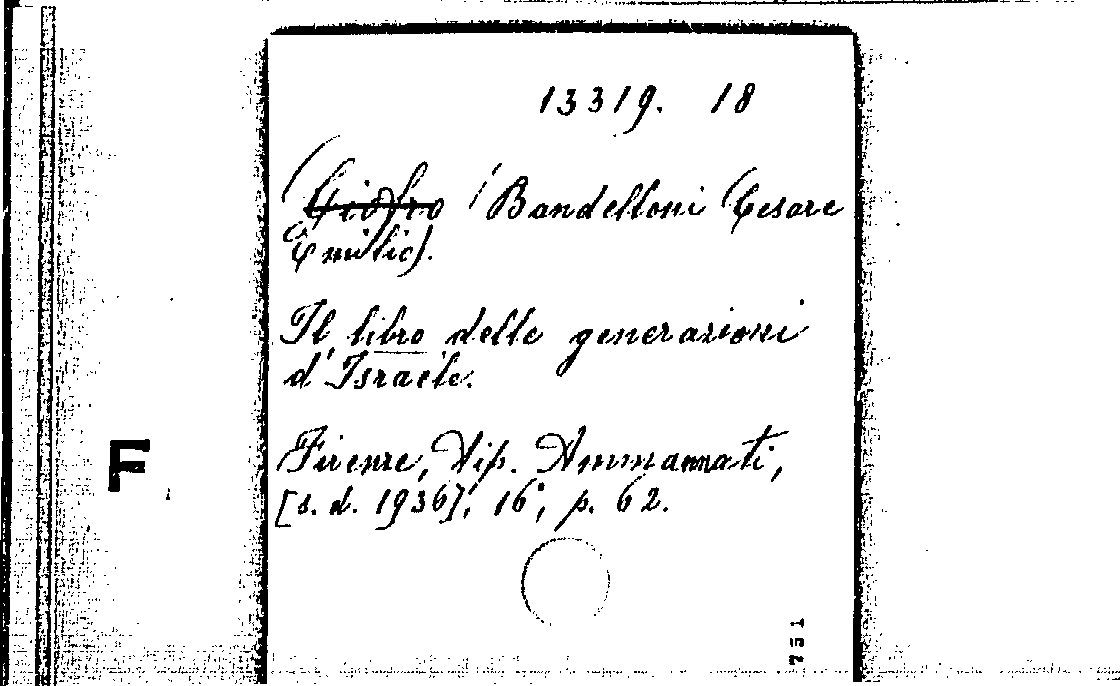 13319. 18
(Giofro / Bandelloni Cesare
Emilio).
Il libro delle generazioni
d'Israele.
Firenze, Tip. Ammannati,
[s. d. 1936], 16°, p. 62.
F
751